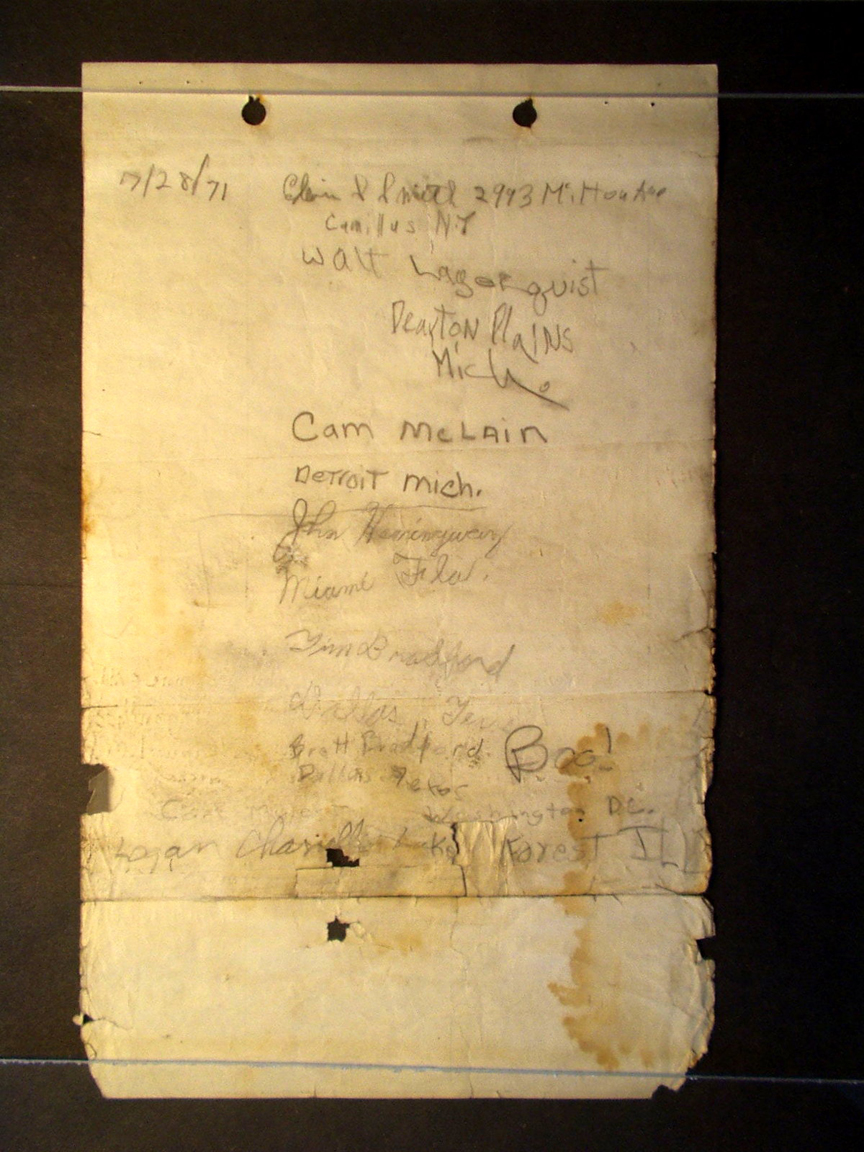 7/28/71 Smith 2993
Camillus N.Y
Walt Lagerquist
Drayton Plains
Mich.
Cam McLain
Detroit Mich.
John Hemingway
Miami Fla.
Tim Bradford
Dallas, Texas
Brett Bradford Boo!
Dallas Texas
Washington D.C.
Logan Forest Il